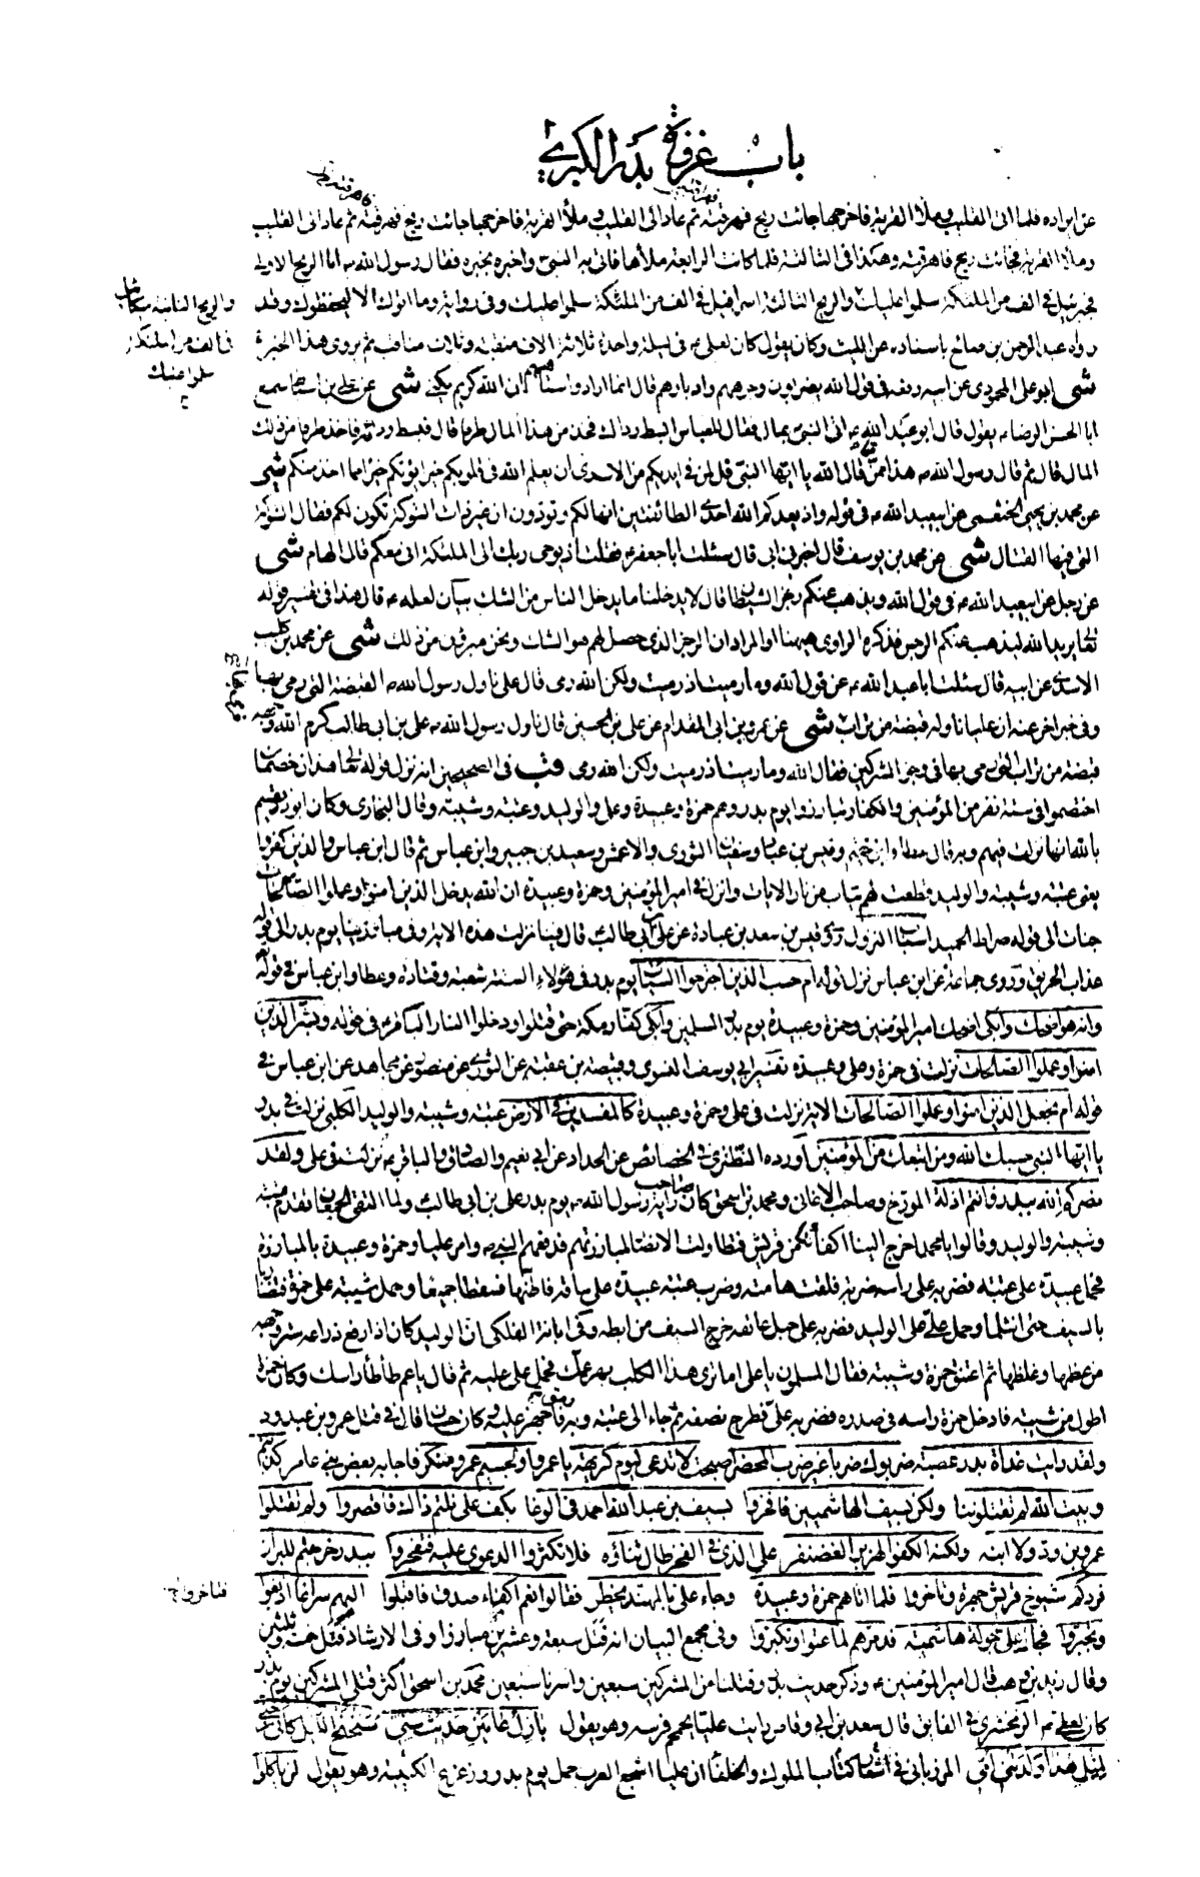 باب غزوة بدر الكبرى
عن ايراده فلما اتى القليب وملأ القربة فاخرجها جائت ريح فهرقته ثم عاد الى القليب وملأ القربة فاخرجها جائت ريح فهرقته ثم عاد الى القليب
وملأ القربة فجائت ريح فاهرقته وهكذا فى الثالثة فلما كانت الرابعة ملأها فاتى به النبى واخبره بخبره فقال رسول الله ص اما الريح الاولى
فجبرئيل فى الف من الملئكة سلموا عليك والريح الثالثة اسرافيل فى الف من الملئكة سلموا عليك وفى رواية وما اتوك الا ليحفظوك وقد
والريح الثانية ميكائيل
فى الف من الملئكة
سلموا عليك
رواه عبد الرحمن بن صالح باسناده عن الليث وكان يقول كان لعلى ع فى ليلة واحدة ثلاثة الاف منقبة وثلاث مناقب ثم يروى هذا الخبر
شى ابو على المحمودى عن ابيه رفعه فى قول الله يضربون وجوههم وادبارهم قال انما اراد واستاههم ان الله كريم يكنى شى عن على بن اسباط سمع
ابا الحسن الرضا ع يقول قال ابو عبد الله ع اتى النبى بمال فقال للعباس ابسط رداك فخذ من هذا المال طرفا قال فبسط رداءه فاخذ طرفا من ذلك
المال قال ثم قال رسول الله ص هذا مما قال الله يا ايها النبى قل لمن فى ايديكم من الاسرى ان يعلم الله فى قلوبكم خيرا يؤتكم خيرا مما اخذ منكم شى
عن محمد بن يحيى الخثعمى عن ابيعبد الله ع فى قوله واذ يعدكم الله احدى الطائفتين انها لكم وتودون ان غير ذات الشوكة تكون لكم فقال الشوكة
التى فيها القتال شى عن محمد بن يوسف قال اخبرنى ابى قال سئلت ابا جعفر ع فقلت اذ يوحى ربك الى الملئكة انى معكم قال الهام شى
عن رجل عن ابيعبد الله ع فى قول الله ويذهب عنكم رجز الشيطان قال لا يدخلنا ما يدخل الناس من الشك بيان لعله ع قال هذا فى تفسير قوله
تعا يريد الله ليذهب عنكم الرجس فذكره الراوى هيهنا او المراد ان الرجز الذى حصل لهم هو الشك ونحن مبرؤن من ذلك شى عن محمد بن كليب
الاسدى عن ابيه قال سئلت ابا عبد الله ع عن قول الله وما رميت اذ رميت ولكن الله رمى قال على ناول رسول الله ص القبضة التى رمى بها
وفى خبر اخر عنه ان عليا ناوله قبضة من تراب شى عن عمرو بن ابى المقدام عن على بن الحسين قال ناول رسول الله ص على بن ابى طالب كرم الله وجهه
قبضة من تراب التى رمى بها فى وجوه المشركين فقال الله وما رميت اذ رميت ولكن الله رمى قب فى الصحيحين انه نزل قوله تعا هذان خصمان
اختصموا فى ستة نفر من المؤمنين والكفار تبارزوا يوم بدر وهم حمزة وعبيدة وعلى والوليد وعتبة وشيبة وقال البخارى وكان ابوذر يقسم
بالله انها نزلت فيهم وبه قال عطاء وابن خيثم وقيس بن عباد وسفيان الثورى والاعمش وسعيد بن جبير وابن عباس ثم قال ابن عباس والذين كفروا
يعنى عتبة وشيبة والوليد قطعت لهم ثياب من نار الايات وانزل فى امير المؤمنين وحمزة وعبيدة ان الله يدخل الذين امنوا وعملوا الصالحات
جنات الى قوله صراط الحميد اسباب النزول روى قيس بن سعد بن عبادة عن على بن ابى طالب قال فينا نزلت هذه الاية وفى مبارزينا يوم بدر الى قوله
عذاب الحريق وروى جماعة عن ابن عباس نزل قوله ام حسب الذين اجترحوا السيئات يوم بدر فى هؤلاء الستة شعبة وقتادة وعطا وابن عباس فى قوله
وانه هو اضحك وابكى اضحك امير المؤمنين وحمزة وعبيدة يوم بدر المسلمين وابكى كفار مكة حتى قتلوا ودخلوا النار الباقر ع فى قوله وبشر الذين
امنوا وعملوا الصالحات نزلت فى حمزة وعلى وعبيدة تفسير ابى يوسف الفسوى وقبيصة بن عقبة عن الثورى عن منصور عن مجاهد عن ابن عباس فى
قوله ام نجعل الذين امنوا وعملوا الصالحات الاية نزلت فى على وحمزة وعبيدة كالمفسدين فى الارض عتبة وشيبة والوليد الكلبى نزلت فى بدر
يا ايها النبى حسبك الله ومن اتبعك من المؤمنين اورده النطنزى فى الخصائص عن الحداد عن ابى نعيم والصادق والباقر ع نزلت فى على ولقد
نصركم الله ببدر وانتم اذلة المورخ وصاحب الاغانى ومحمد بن اسحق كان صاحب راية رسول الله ص يوم بدر على بن ابى طالب ولما التقى الجمعان تقدم عتبة
وشيبة والوليد وقالوا يا محمد اخرج الينا اكفأنا من قريش فتطاولت الانصار لمبارزتهم فدفعهم النبى ص وامر عليا وحمزة وعبيدة بالمبارزة
فحمل عبيدة على عتبة فضربه على راسه ضربة فلقت هامته وضرب عتبة عبيدة على ساقه فاطنها فسقطا جميعا وحمل شيبة على حمزة فتضاربا
بالسيف حتى انثلما وحمل على على الوليد فضربه على حبل عاتقه خرج السيف من ابطه وفى ابانة الفلكى ان الوليد كان اذا رفع ذراعه ستر وجهه
من عظمها وغلظها ثم اعتنق حمزة وشيبة فقال المسلمون يا على اما ترى هذا الكلب يهر عمك فحمل على عليه ثم قال يا عم طأطأ راسك وكان حمزة
اطول من شيبة فادخل حمزة راسه فى صدره فضربه على فطرح نصفه ثم جاء الى عتبة وبه رمق فاجهز عليه وكان حسان قال فى قتل عمرو بن عبدود
ولقد رايت غداة بدر عصبة ضربوك ضربا غير ضرب المحضر اصبحت لا تدعى ليوم كريهة يا عمرو او لجسيم امر منكر فاجابه بعض بنى عامر كذبتم
وبيت الله لم تقتلوننا ولكن بسيف الهاشميين فافخروا بسيف بن عبد الله احمد فى الوغا بكف على نلتم ذاك فاقصروا ولم تقتلوا
عمرو بن ود ولا ابنه ولكنه الكفو الهزبر الغضنفر على الذى فى الفخر طال ثناؤه فلا تكثروا الدعوى عليه فتفجروا ببدر خرجتم للبراز
فردكم شيوخ قريش جهرة وتاخروا فلما اتاهم حمزة وعبيدة وجاء على بالمهند يخطر فقالوا نعم اكفاء صدق فاقبلوا اليهم سراعا اذ بغوا
فتاخروا
وتجبروا فجال على جولة هاشمية فدمرهم لما عتوا وتكبروا وفى مجمع البيان انه قتل سبعة وعشرين مبارزا وفى الارشاد قتل خمسة وثلثين
وقال زيد بن وهب قال امير المؤمنين ع وذكر حديث بدر وقتلنا من المشركين سبعين واسرنا سبعين محمد بن اسحق اكثر قتلى المشركين يوم بدر
كان لعلى ع الزمخشرى فى الفايق قال سعد بن ابى وقاص رايت عليا يحمحم فرسه وهو يقول بازل عامين حديث سنى سنحنح الليل كانى جنى
لمثل هذا ولدتنى امى المرزبانى فى كتاب اشعار الملوك والخلفا ان عليا اشجع العرب حمل يوم بدر وزعزع الكتيبة وهو يقول لن ياكلوا